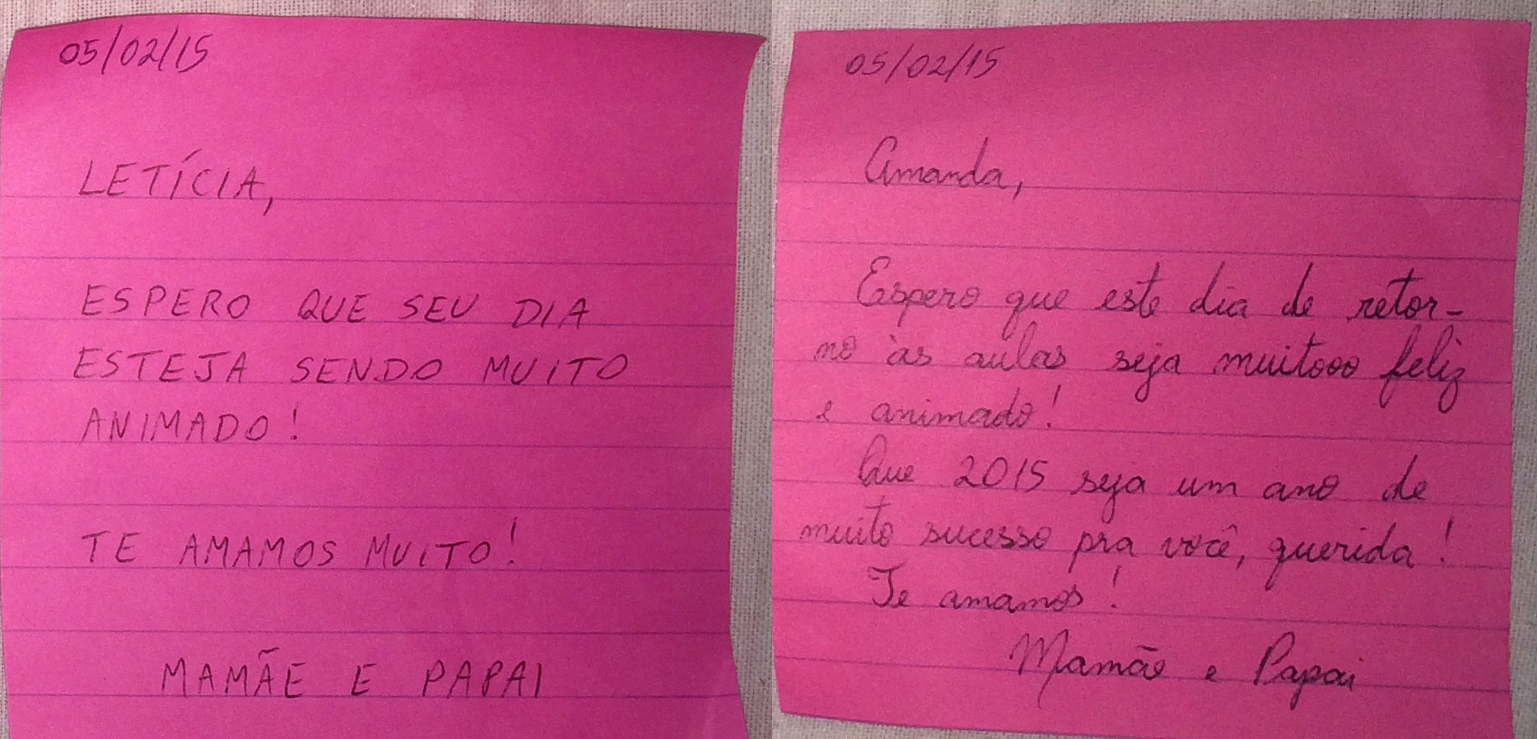 05/02/15
LETÍCIA,
ESPERO QUE SEU DIA
ESTEJA SENDO MUITO
ANIMADO!
TE AMAMOS MUITO!
MAMÃE E PAPAI
05/02/15
Amanda,
Espero que este dia de retor-
no às aulas seja muitooo feliz
e animado!
Que 2015 seja um ano de
muito sucesso pra você, querida!
Te amamos!
Mamãe e Papai